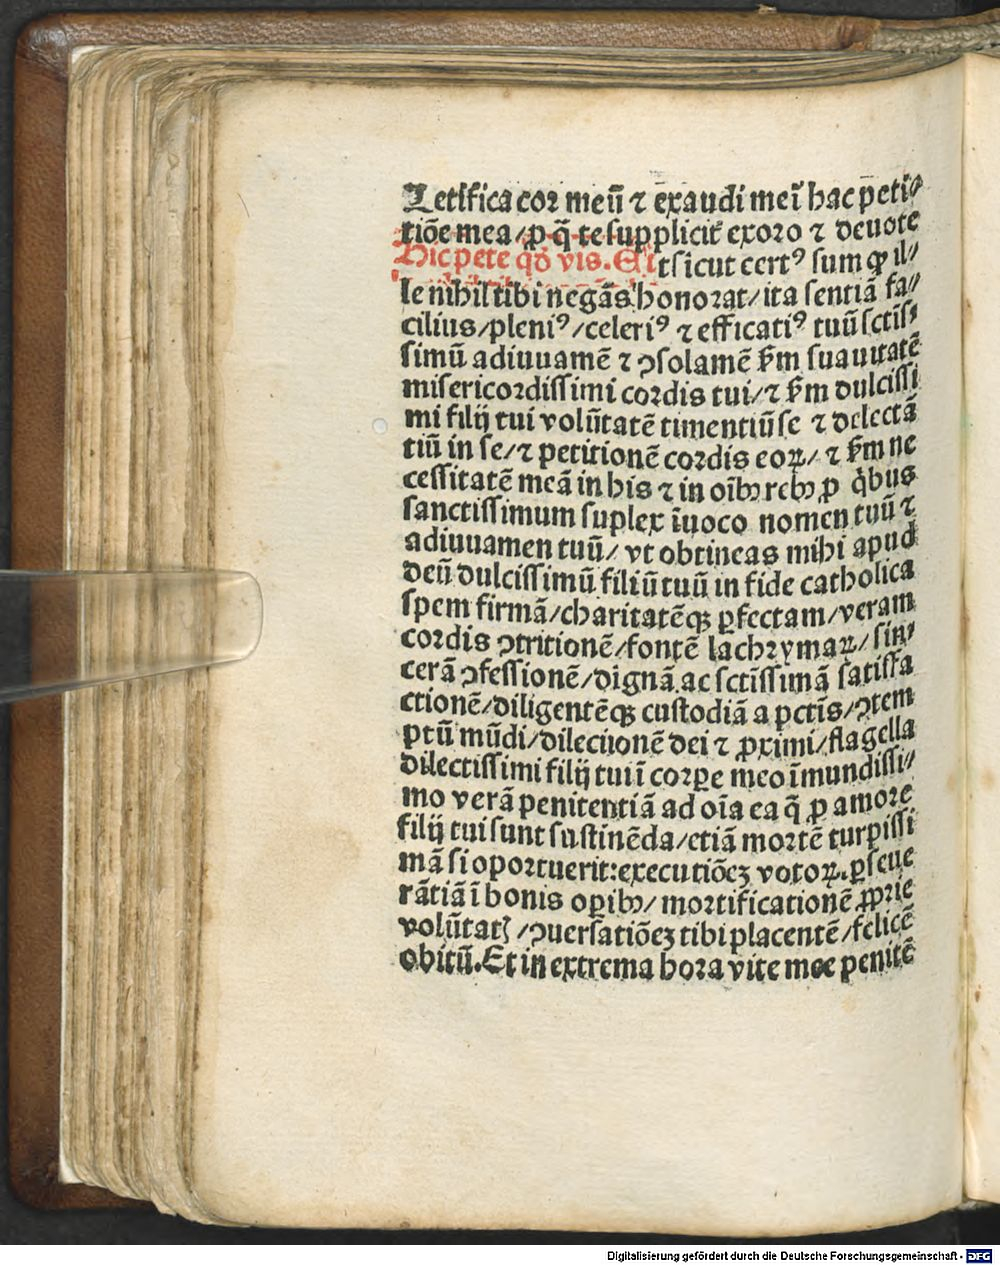 Letifica cor meū ⁊ exaudi me ī hac peti⸗
tiōe mea / ꝓ q̄ te suppliciť exoro ⁊ deuote
Hic pete qđ vis. Et
et sicut certꝰ sum ꝙ il⸗
le nihil tibi negās honorat / ita sentiā fa⸗
cilius / pleniꝰ / celeriꝰ ⁊ efficatiꝰ tuū sctis⸗
simū adiuuamē ⁊ ꝯsolamē ẜm suauitatē
misericordissimi cordis tui / ⁊ ẜm dulcissi
mi filij tui volūtatē timentiū se ⁊ delectā
tiū in se / ⁊ petitionē cordis eoꝝ / ⁊ ẜm ne
cessitatē meā in his ⁊ in oībꝫ rebꝫ ꝓ q̇bus
sanctissimum suplex īuoco nomen tuū ⁊
adiuuamen tuū / vt obtineas mihi apud
deū dulcissimū filiū tuū in fide catholica
spem firmā / charitatēqꝫ ꝑfectam / veram
cordis ꝯtritionē / fontē lachrymaꝝ / sin⸗
cerā ꝯfessionē / dignā ac sctīssimā satisfa
ctionē / diligentēqꝫ custodiā a pctīs / ꝯtem
ptū mūdi / dilectionē dei ⁊ ꝓximi / flagella
dilectissimi filij tui ī corꝑe meo īmundissi⸗
mo verā penitentiā ad oīa ea q̄ ꝓ amore
filij tui sunt sustinēda / etiā mortē turpissi
mā si oportuerit: executiōeꝫ votoꝝ. ꝑseue
rātiā ī bonis oꝑibꝫ / mortificationē ꝓprie
volūtatꝭ / ꝯuersatiōeꝫ tibi placentē / felicē
obitū. Et in extrema hora vite mee penitē
Digitalisierung gefördert durch die Deutsche Forschungsgemeinschaft - DFG